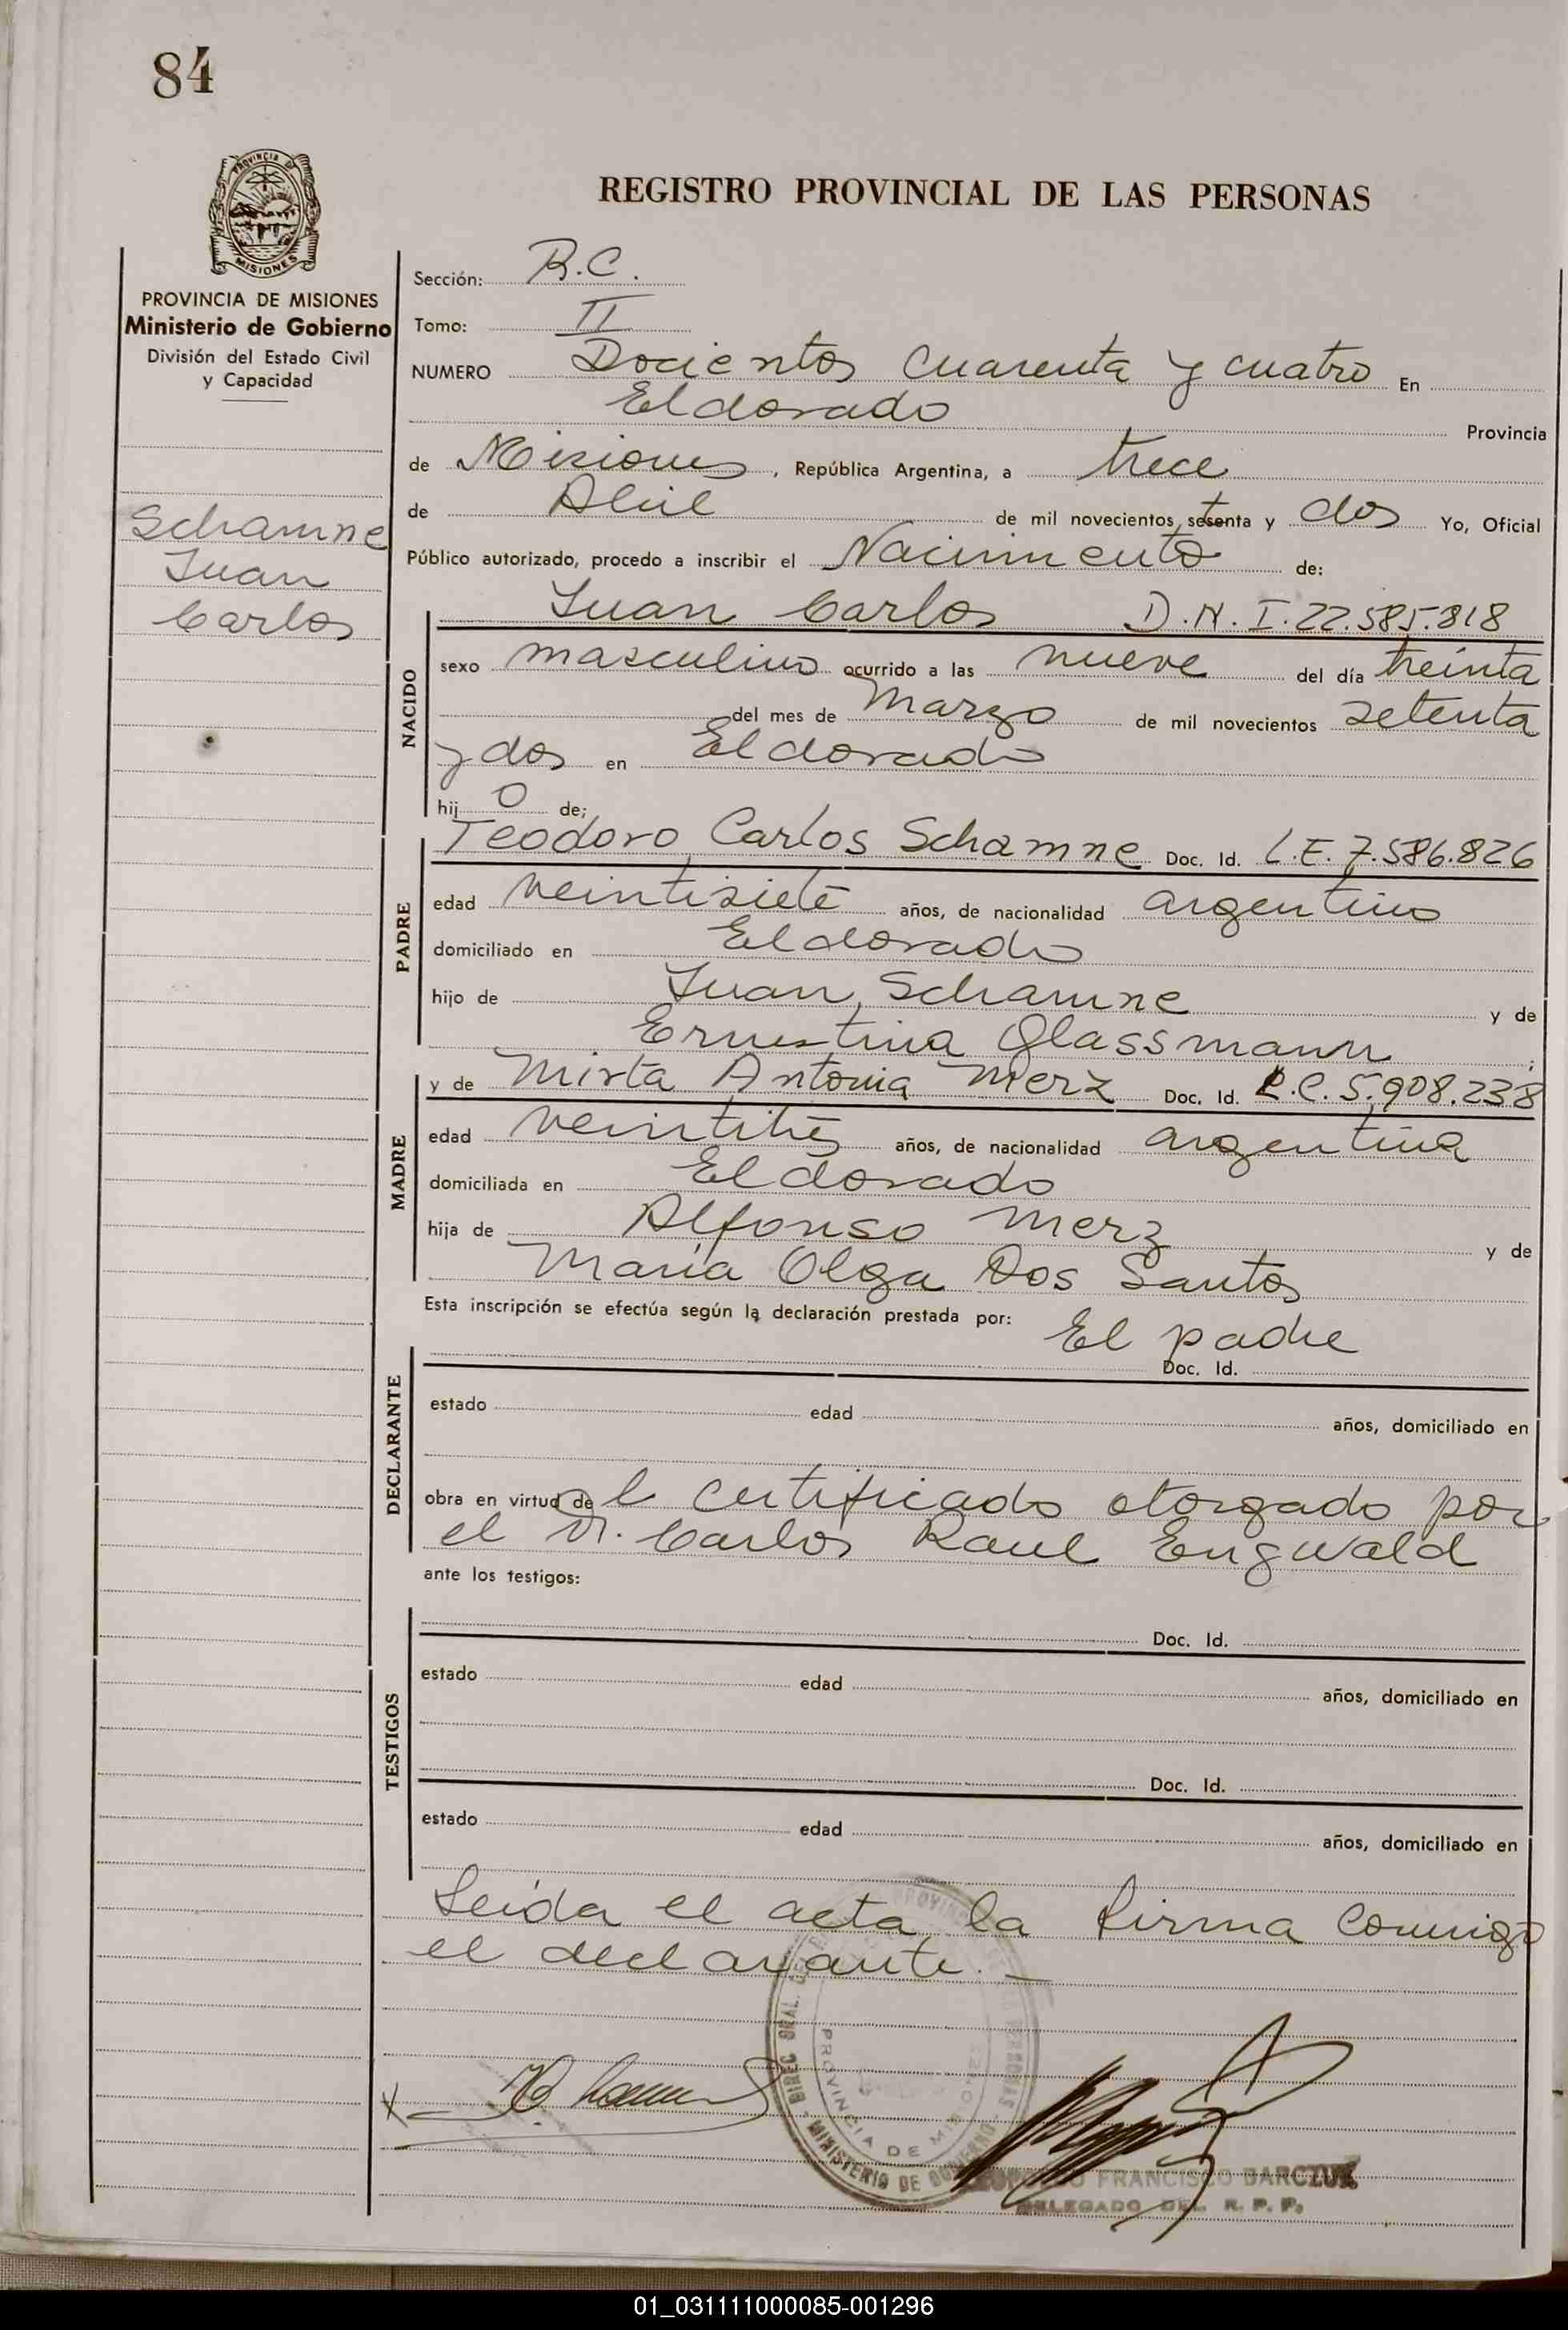 84
PROVINCIA DE
MISIONES
REGISTRO PROVINCIAL DE LAS PERSONAS
PROVINCIA DE MISIONES
Ministerio de Gobierno
División del Estado Civil
y Capacidad
Schamne
Juan
Carlos
Sección: R.C.
Tomo: II
NUMERO Docientos cuarenta y cuatro En
Eldorado Provincia
de Misiones, República Argentina, a trece
de Abril de mil novecientos setenta y dos Yo, Oficial
Público autorizado, procedo a inscribir el Nacimiento de:
Juan Carlos D.N.I. 22.585.818
NACIDO
sexo masculino ocurrido a las nueve del día treinta
del mes de Marzo de mil novecientos setenta
y dos en Eldorado
hij o de;
Teodoro Carlos Schamne Doc. Id. L.E. 7.586.826
PADRE
edad veintisiete años, de nacionalidad argentino
domiciliado en Eldorado
hijo de Juan Schamne y de
Ernestina Glassmann ;
y de Mirta Antonia Merz Doc. Id. L.C. 5.908.238
MADRE
edad veintitrés años, de nacionalidad argentina
domiciliada en Eldorado
hija de Alfonso Merz y de
María Olga Dos Santos
Esta inscripción se efectúa según la declaración prestada por: El padre
Doc. Id.
DECLARANTE
estado edad años, domiciliado en
obra en virtud de l certificado otorgado por
el Dr. Carlos Raul Engwald
ante los testigos:
Doc. Id.
TESTIGOS
estado edad años, domiciliado en
Doc. Id.
estado edad años, domiciliado en
Leída el acta la firma conmigo
el declarante. —
PROVINCIA DE MISIONES
MINISTERIO DE GOBIERNO
FRANCISCO BARCZUK
DELEGADO DEL R. P. P.
01_031111000085-001296